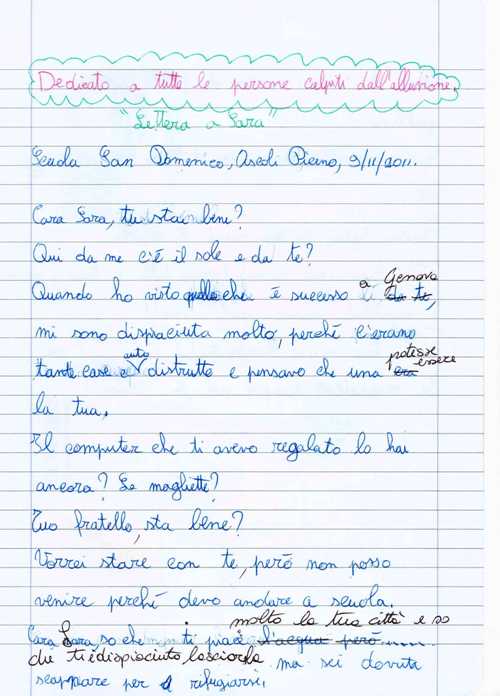 Dedicato a tutte le persone colpiti dall'alluvione.
"Lettera a Sara"
Scuola San Domenico, Ascoli Piceno, 9/11/2011.
Cara Sara, tu stai bene?
Qui da me c'è il sole e da te?
Quando ho visto quello che è successo a Genova da te,
mi sono dispiaciuta molto, perché c'erano
tante case e auto distrutte e pensavo che una era potesse essere
la tua.
Il computer che ti avevo regalato lo hai
ancora? Le magliette?
Tuo fratello, sta bene?
Vorrei stare con te, però non posso
venire perché devo andare a scuola.
Cara Sara, so che ti piace l'acqua però..... molto la tua città e so
che ti è dispiaciuto lasciarla ma sei dovuta
scappare per rifugiarsi.